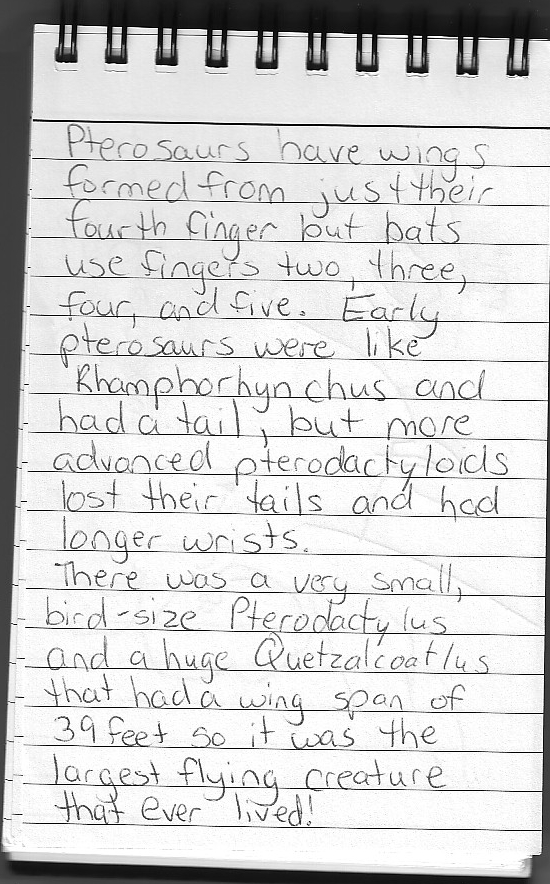 Pterosaurs have wings
formed from just their
fourth finger but bats
use fingers two, three,
four, and five. Early
pterosaurs were like
Rhamphorhynchus and
had a tail, but more
advanced pterodactyloids
lost their tails and had
longer wrists.
There was a very small,
bird-size Pterodactylus
and a huge Quetzalcoatlus
that had a wing span of
39 feet so it was the
largest flying creature
that ever lived!